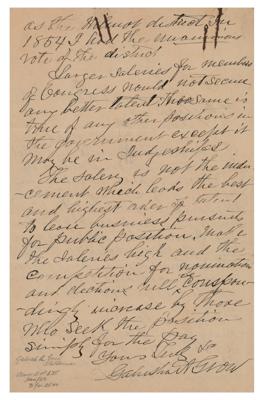 as the Wilmot district in
1854 I had the unanimous
vote of the district
Larger Salaries for members
of Congress would not secure
any better talent. The same is
true of any other positions in
the government except it
may be in Judgeships
The Salary is not the indu-
cement which leads the best
and highest order of talent
to leave business pursuits
for public position. Make
the Salaries high and the
competition for nominations
and elections will correspon-
dingly increase by those
who seek the position
simply for the pay
Yours Truly
Galusha A Grow